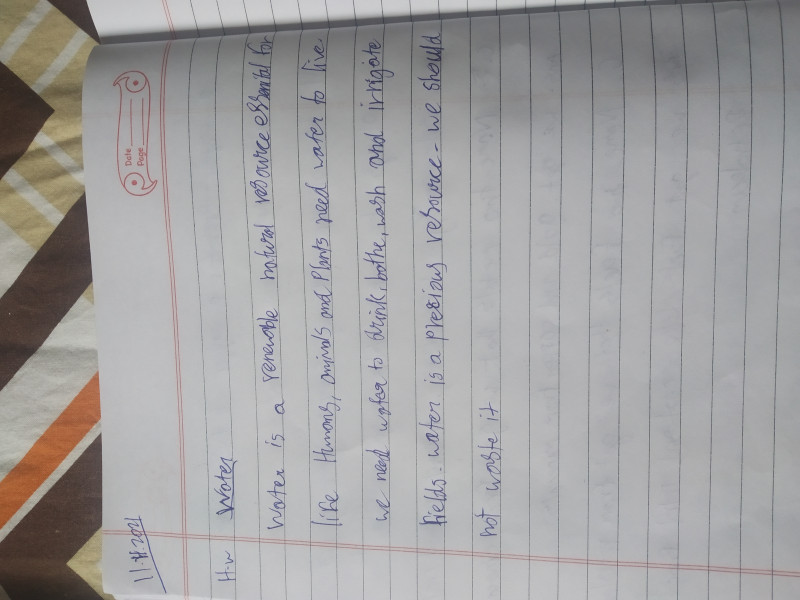 Date
Page
11.11.2021
H.w Water
Water is a renewable natural resource essential for
life Humans, animals and Plants need water to live.
we need water to drink, bathe, wash and irrigate
fields. water is a precious resource - we should
not waste it